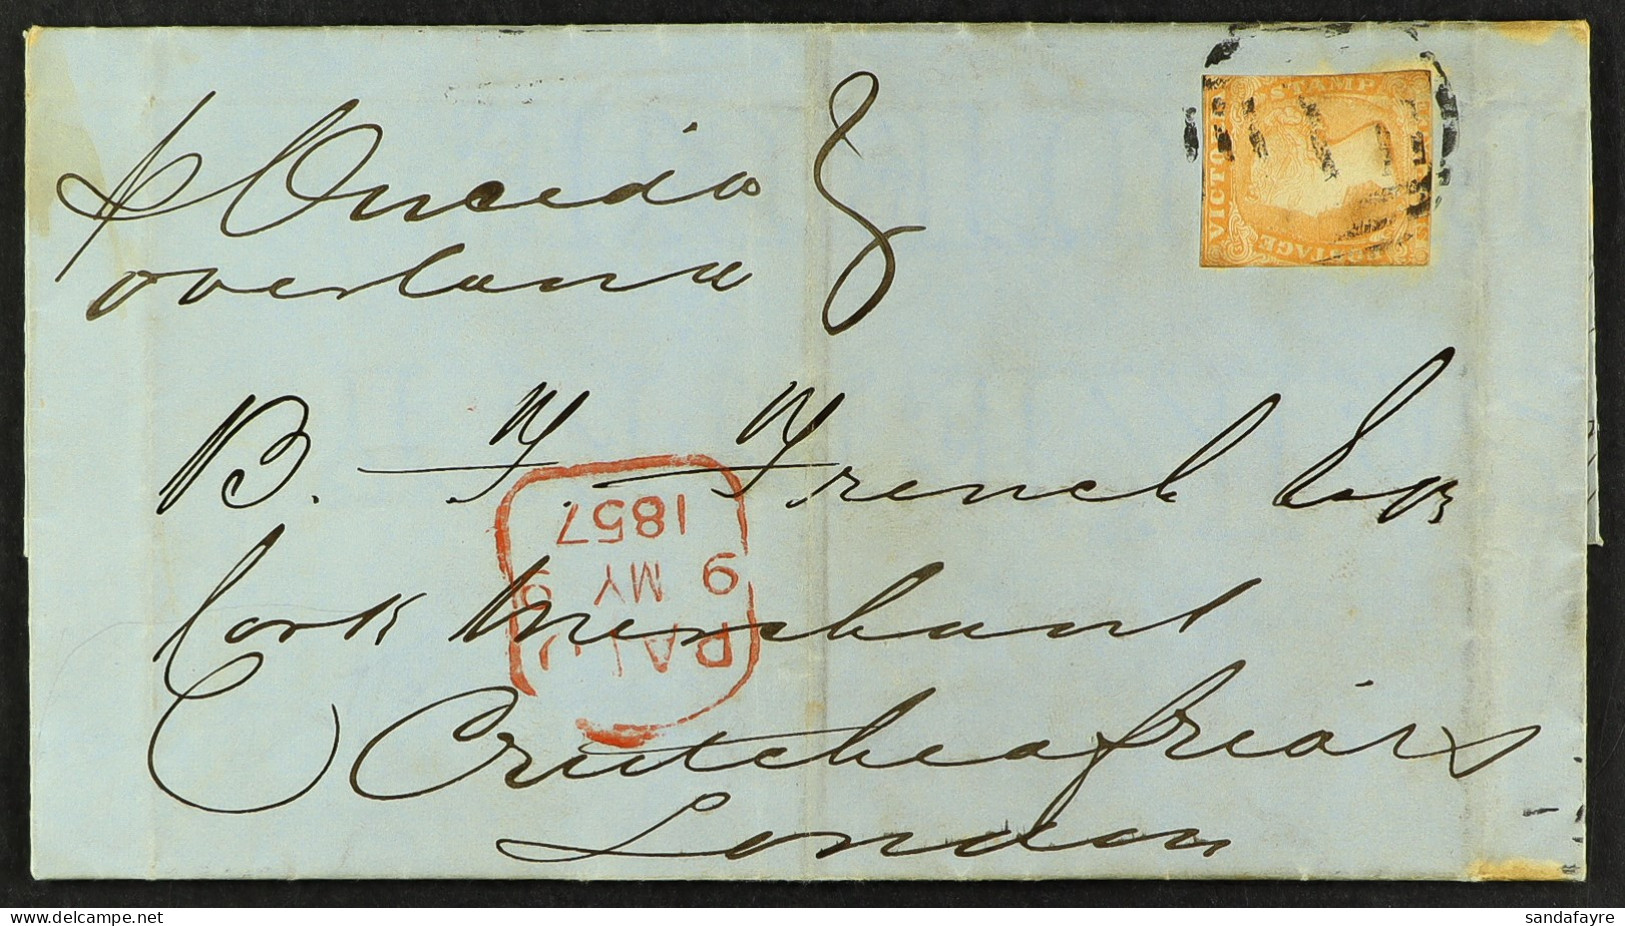 p Oneida
overland
8
STAMP
VICTORIA
POSTAGE
B. F. French Esq
Cork Merchant
Crutchea friars
London
PAID
9 MY 9
1857
sandafayre